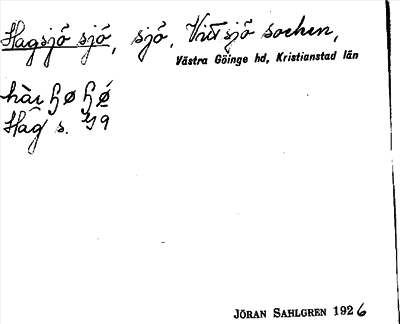 Hagsjö sjö, sjö, Vittsjö socken,
Västra Göinge hd, Kristianstad län
Hag s. 19
JÖRAN SAHLGREN 1926